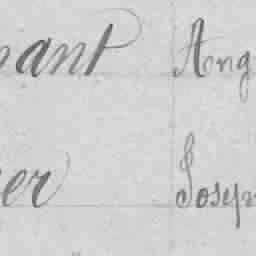 ant Ang
er Josep